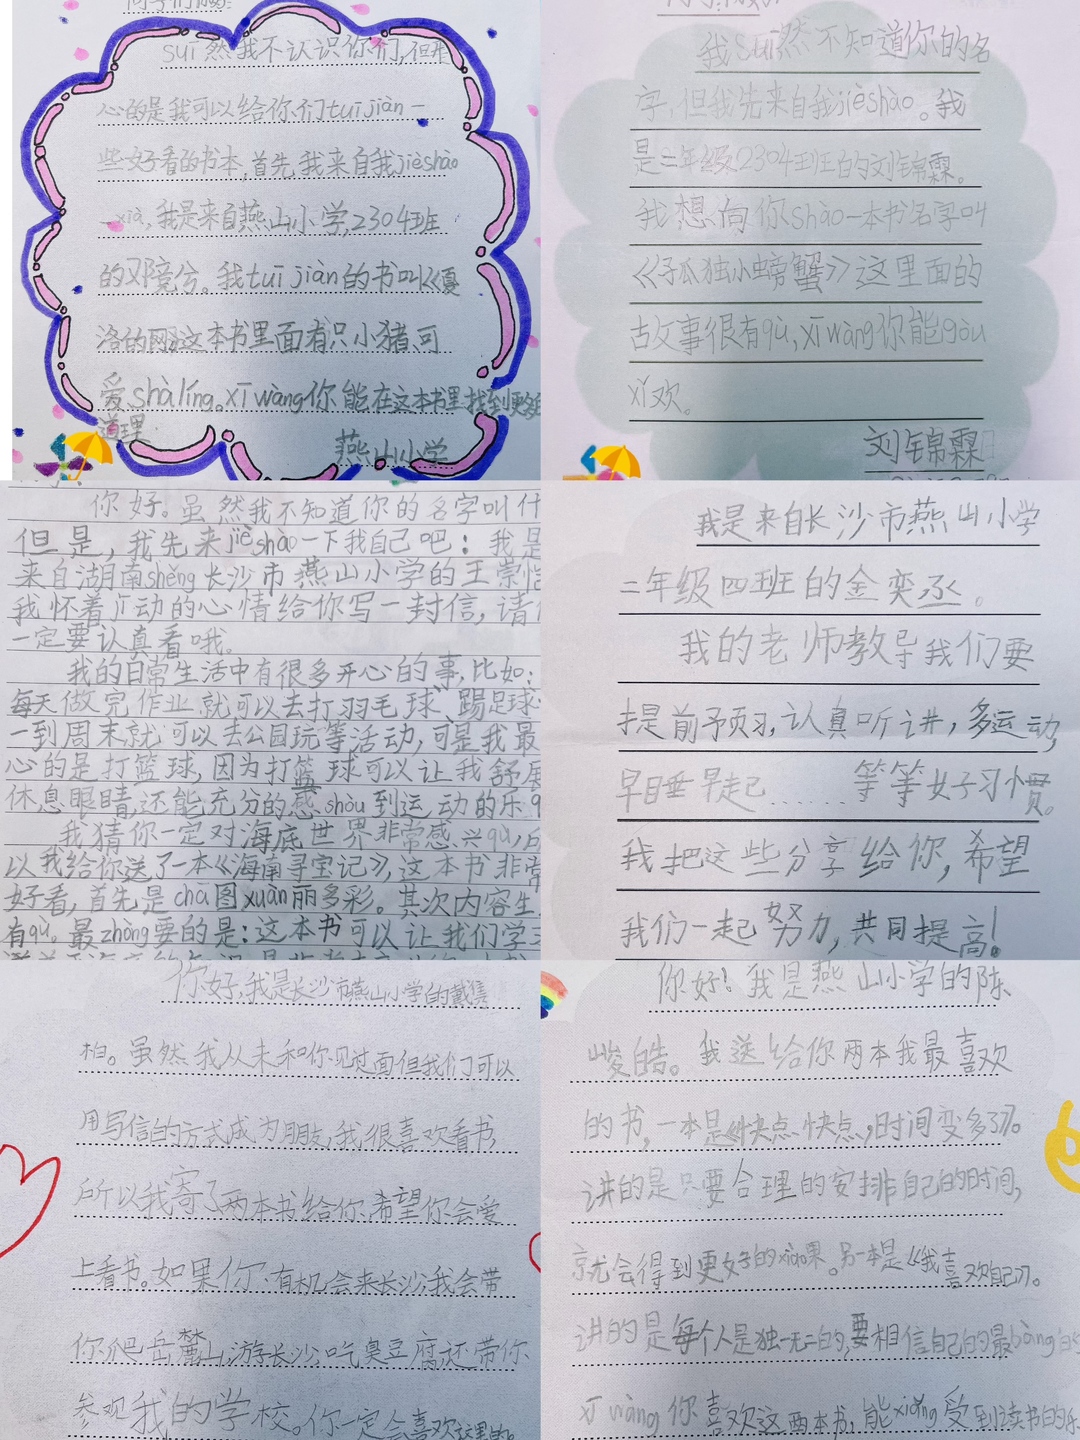 suī然我不认识你们,但开
心的是我可以给你们tuījiàn一
些好看的书本,首先,我来自我jièshào
一xià,我是来自燕山小学,2304班
的邓竞兮。我tuījiàn的书叫《夏
洛的网》这本书里面有只小猪,可
爱shàlíng。xīwàng你能在这本书里找到更多
道理.
燕山小学
我suī然不知道你的名
字,但我先来自我jièshào。我
是二年级2304班的刘锦霖。
我想向你shào一本书名字叫
《孤独小螃蟹》这里面的
古故事很有qù,xīwàng你能gòu
xǐ欢。
刘锦霖
你好。虽然我不知道你的名字叫什
但是,我先来jièshào一下我自己吧:我是
来自湖南shěng长沙市燕山小学的王崇
我怀着 动的心情给你写一封信,请
一定要认真看哦。
我的日常生活中有很多开心的事,比如:
每天做完作业就可以去打羽毛球、踢足球
一到周末就可以去公园玩等活动,可是我最
心的是打篮球,因为打篮球可以让我舒
休息眼睛,还能充分的感shòu到运动的乐
我猜你一定对海底世界非常感兴qù,所
以我给你送了一本《海南寻宝记》,这本书非常
好看,首先是chā图xuàn丽多彩。其次内容生
有qù。最zhòng要的是:这本书可以让我们学
我是来自长沙市燕山小学
二年级四班的金奕丞。
我的老师教导我们要
提前予页习,认真听讲,多运动,
早日垂早起........等等好习惯。
我把这些分享给你,希望
我们一起努力,共同提高!
你好,我是长沙市燕山小学的戴
柏。虽然我从未和你见过面但我们可以
用写信的方式成为朋友,我很喜欢看书
所以我寄了两本书给你.希望你会爱
上看书。如果你有机会来长沙,我会带
你爬岳麓山,游长沙,吃臭豆腐还带你
参观我的学校。你一定会喜欢这里的。
你好!我是燕山小学的陈
峻皓。我送给你两本我最喜欢
的书,一本是《快点快点,时间变多了》。
讲的是只要合理的安排自己的时间,
就会得到更好的xiào果。另一本是《我喜欢自己》。
讲的是每个人是独一无二的,要相信自己的最bàng的
xīwàng你喜欢这两本书,能xiǎng受到读书的乐